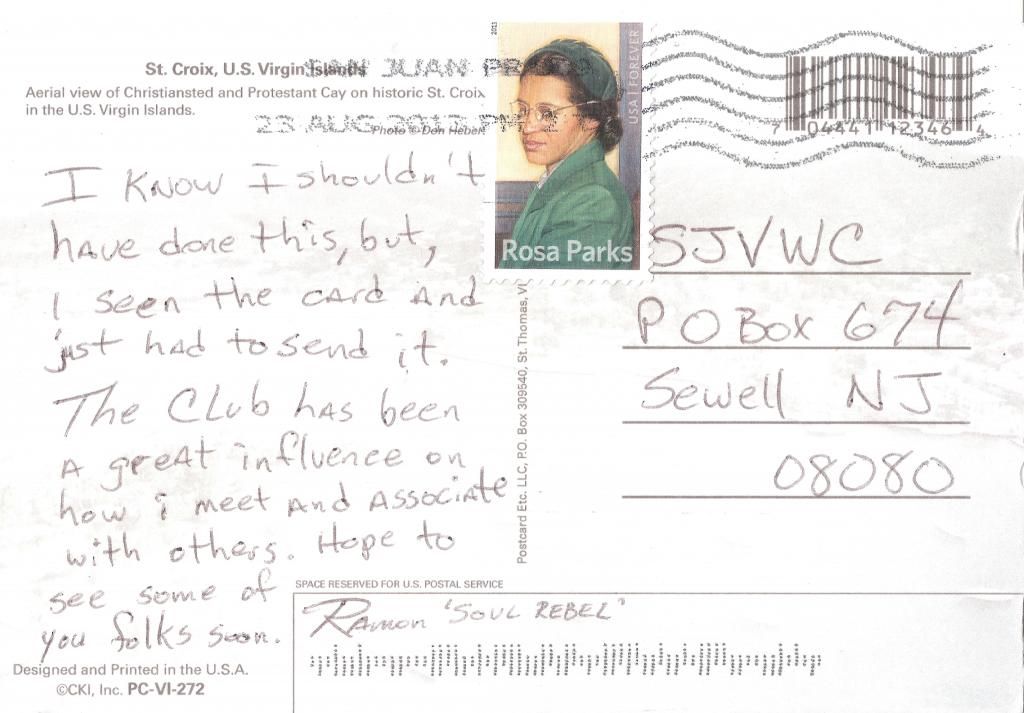 St. Croix, U.S. Virgin Islands
Aerial view of Christiansted and Protestant Cay on historic St. Croix
in the U.S. Virgin Islands.
Photo © Don Hebert
SAN JUAN PR
23 AUG 2013 PM 2
2013
USA FOREVER
Rosa Parks
7 04441 12346 4
I KNOW I shouldn't
have done this, but,
I seen the card and
just had to send it.
The Club has been
A great influence on
how i meet and associate
with others. Hope to
see some of
you folks soon.
Ramon 'Soul Rebel'
SJVWC
PO Box 674
Sewell NJ
08080
Postcard Etc. LLC, P.O. Box 309540, St. Thomas, VI
SPACE RESERVED FOR U.S. POSTAL SERVICE
Designed and Printed in the U.S.A.
©CKI, Inc. PC-VI-272